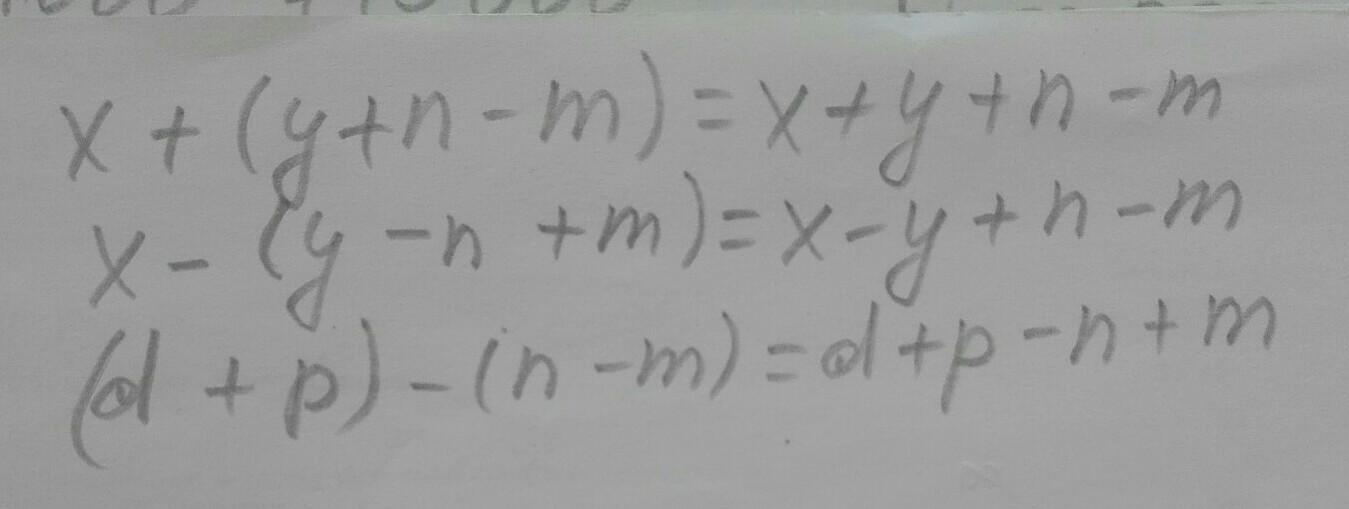 x + (y+n-m) = x+y+n-m
x - (y-n+m) = x-y+n-m
(d+p) - (n-m) = d+p-n+m